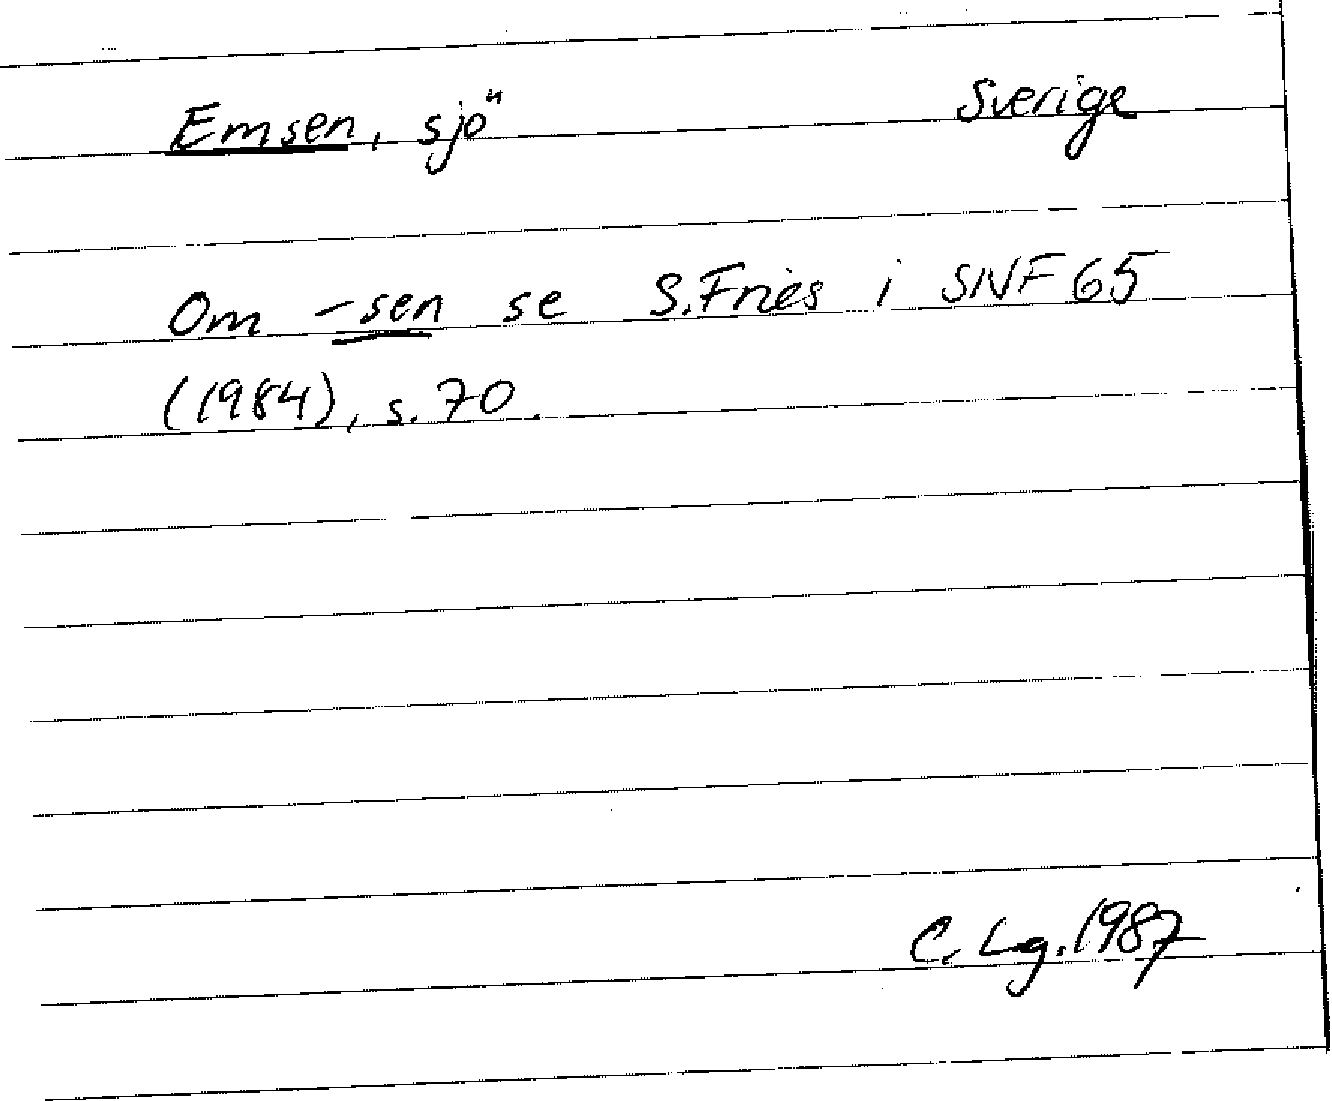 Emsen, sjö Sverige
Om -sen se S. Fries i SNF 65
(1984), s. 70.
C. Lg. 1987